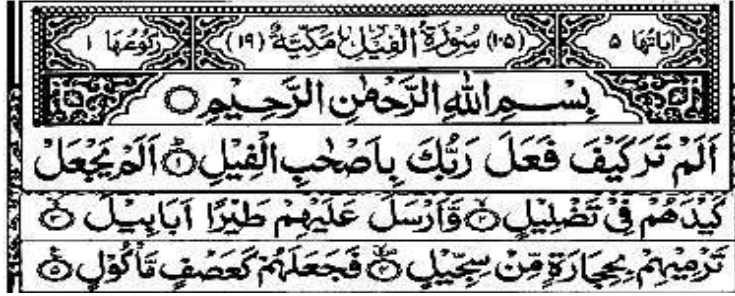 اٰیَاتُهَا ۵ (۱۰۵) سُوْرَةُ الْفِيْلِ مَكِّيَّةٌ (۱۹) رُكُوْعُهَا ۱
بِسْمِ اللّٰهِ الرَّحْمٰنِ الرَّحِيْمِ ○
اَلَمْ تَرَ كَيْفَ فَعَلَ رَبُّكَ بِاَصْحٰبِ الْفِيْلِ ۱ اَلَمْ يَجْعَلْ
كَيْدَهُمْ فِيْ تَضْلِيْلٍ ۲ وَّاَرْسَلَ عَلَيْهِمْ طَيْرًا اَبَابِيْلَ ۳
تَرْمِيْهِمْ بِحِجَارَةٍ مِّنْ سِجِّيْلٍ ۴ فَجَعَلَهُمْ كَعَصْفٍ مَّاْكُوْلٍ ۵